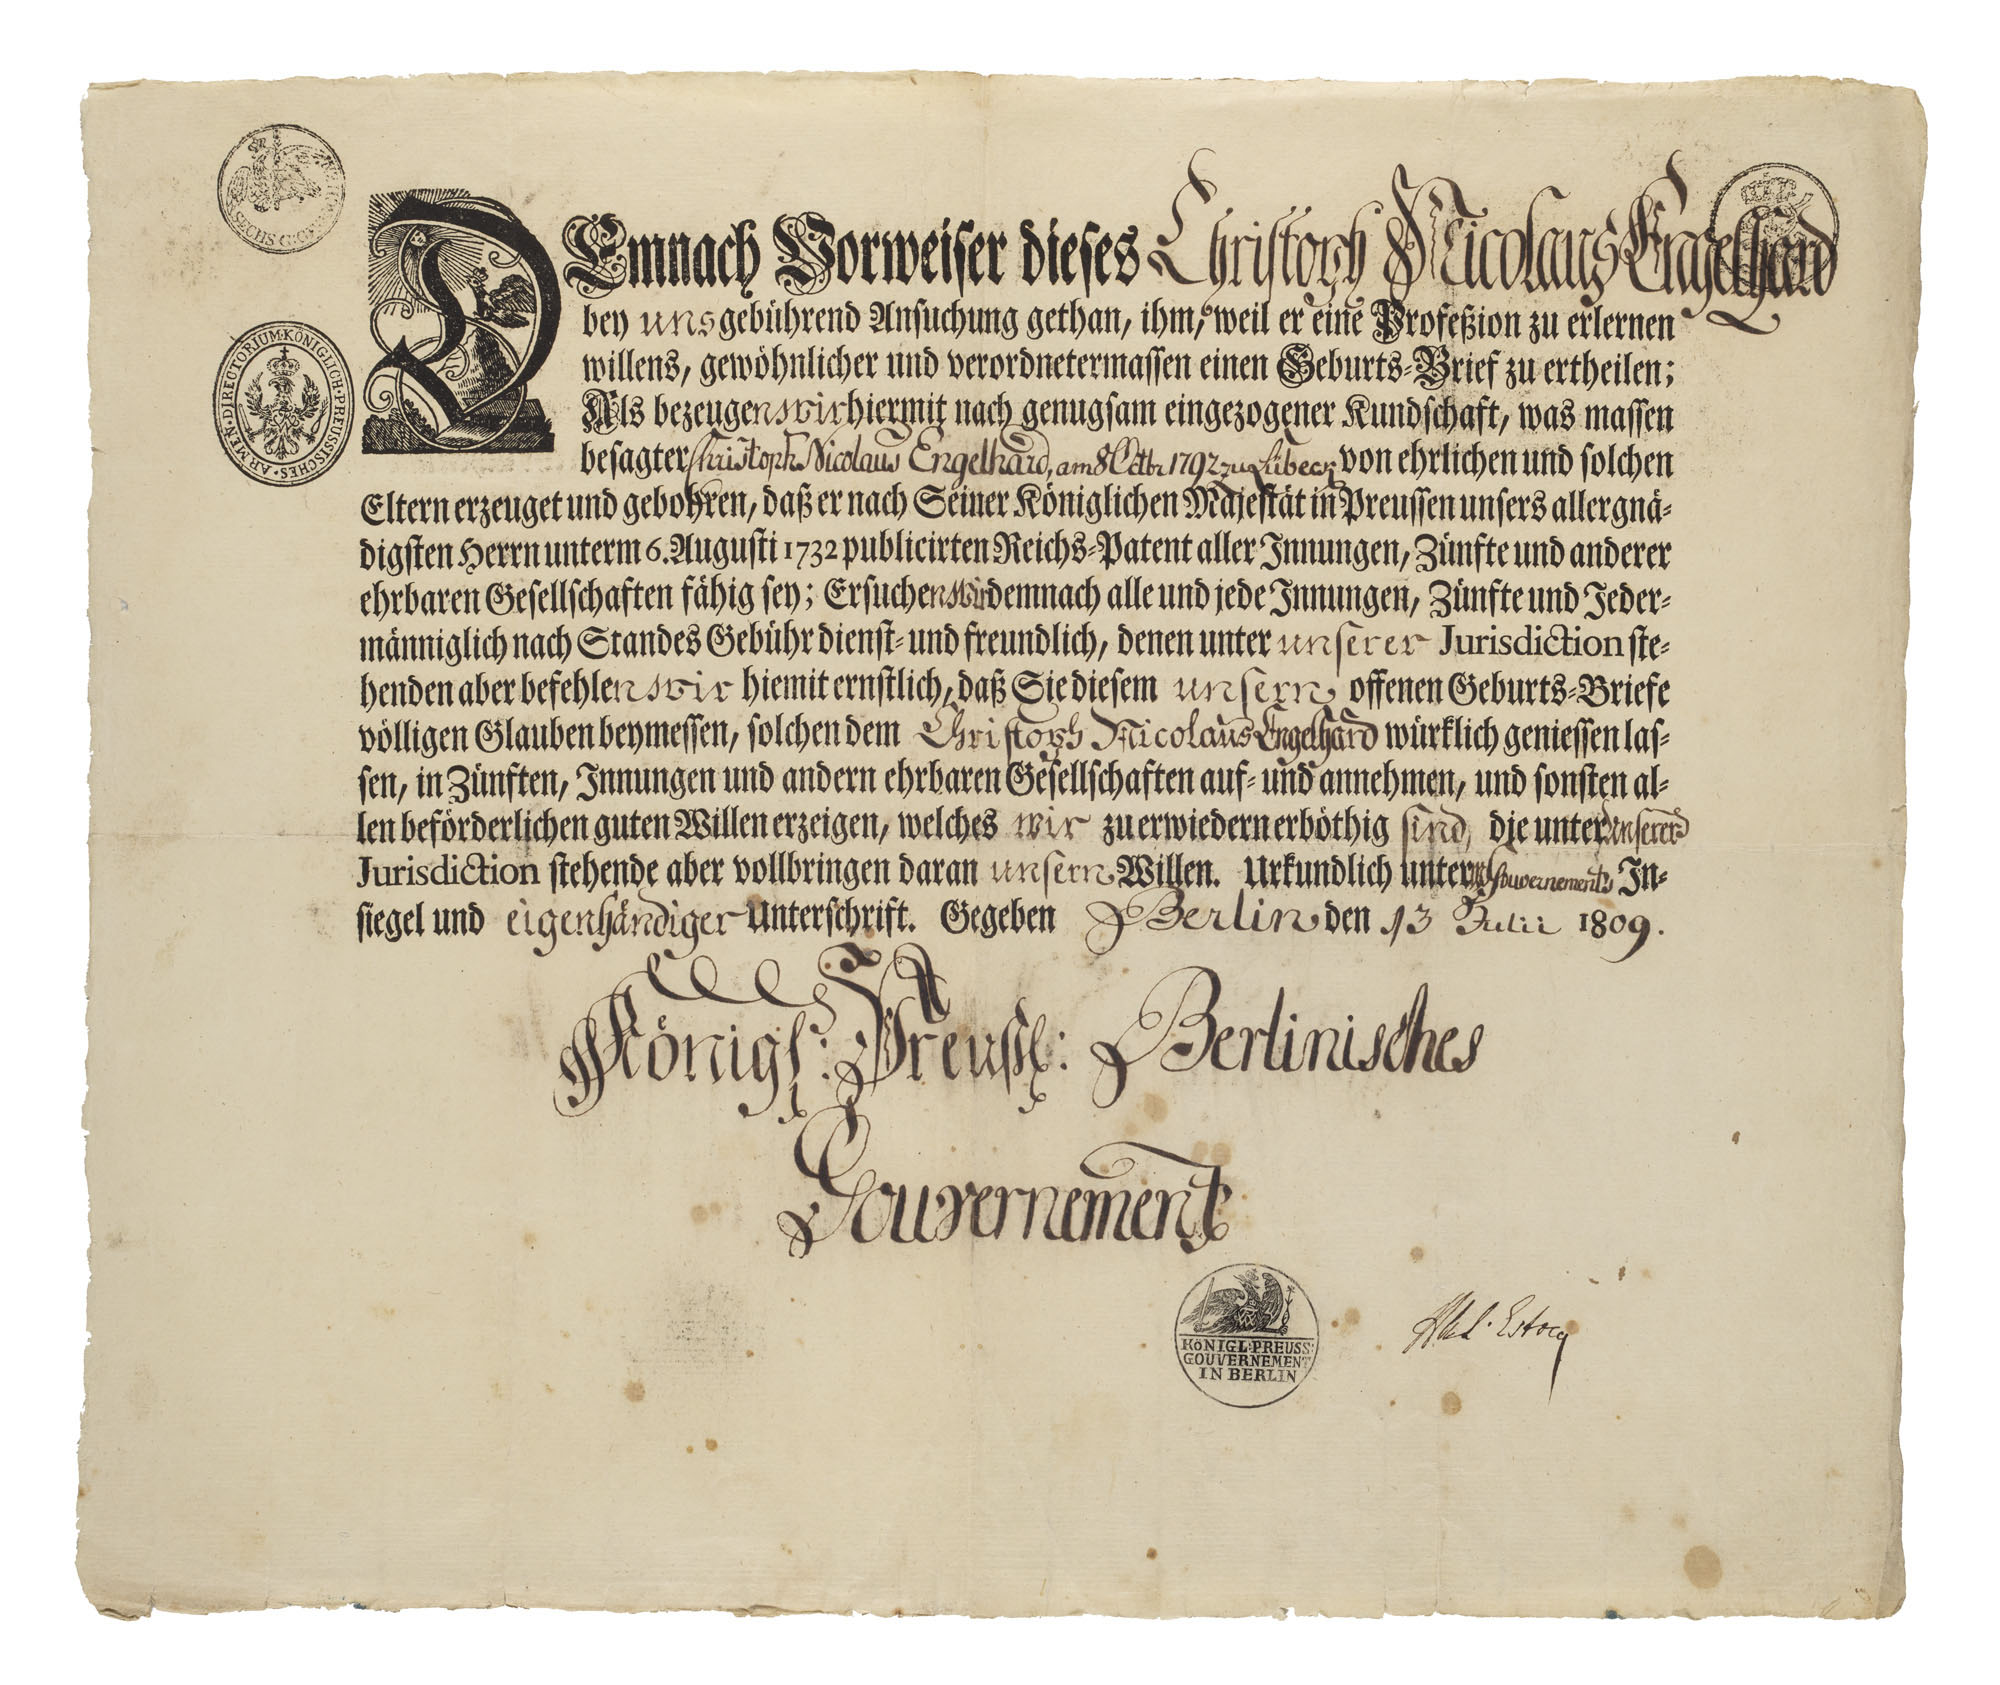 SECHS G. GR.
ARMEN·DIRECTORIUM·KÖNIGLICH·PREUSSISCHES·
DEmnach Vorweiser dieses Christoph Nicolaus Engelhard
bey uns gebührend Ansuchung gethan, ihm, weil er eine Profeßion zu erlernen
willens, gewöhnlicher und verordnetermassen einen Geburts-Brief zu ertheilen;
Als bezeugen wir hiermit nach genugsam eingezogener Kundschaft, was massen
besagter Christoph Nicolaus Engelhard, am 8 Octbr 1792 zu Lübeck von ehrlichen und solchen
Eltern erzeuget und gebohren, daß er nach Seiner Königlichen Majestät in Preussen unsers allergnä-
digsten Herrn unterm 6. Augusti 1732 publicirten Reichs-Patent aller Innungen, Zünfte und anderer
ehrbaren Gesellschaften fähig sey; Ersuchen wir demnach alle und jede Innungen, Zünfte und Jeder-
männiglich nach Standes Gebühr dienst- und freundlich, denen unter unserer Jurisdiction ste-
henden aber befehlen wir hiemit ernstlich, daß Sie diesem unsern offenen Geburts-Briefe
völligen Glauben beymessen, solchen dem Christoph Nicolaus Engelhard würklich geniessen las-
sen, in Zünften, Innungen und andern ehrbaren Gesellschaften auf- und annehmen, und sonsten al-
len beförderlichen guten Willen erzeigen, welches wir zu erwiedern erböthig sind, die unter unserer
Jurisdiction stehende aber vollbringen daran unsern Willen. Urkundlich unter Gouvernements In-
siegel und eigenhändiger Unterschrift. Gegeben Berlin den 13 Julii 1809.
Königl: Preußl: Berlinisches
Gouvernement
KÖNIGL:PREUSS:
GOUVERNEMENT
IN BERLIN
L'Estocq